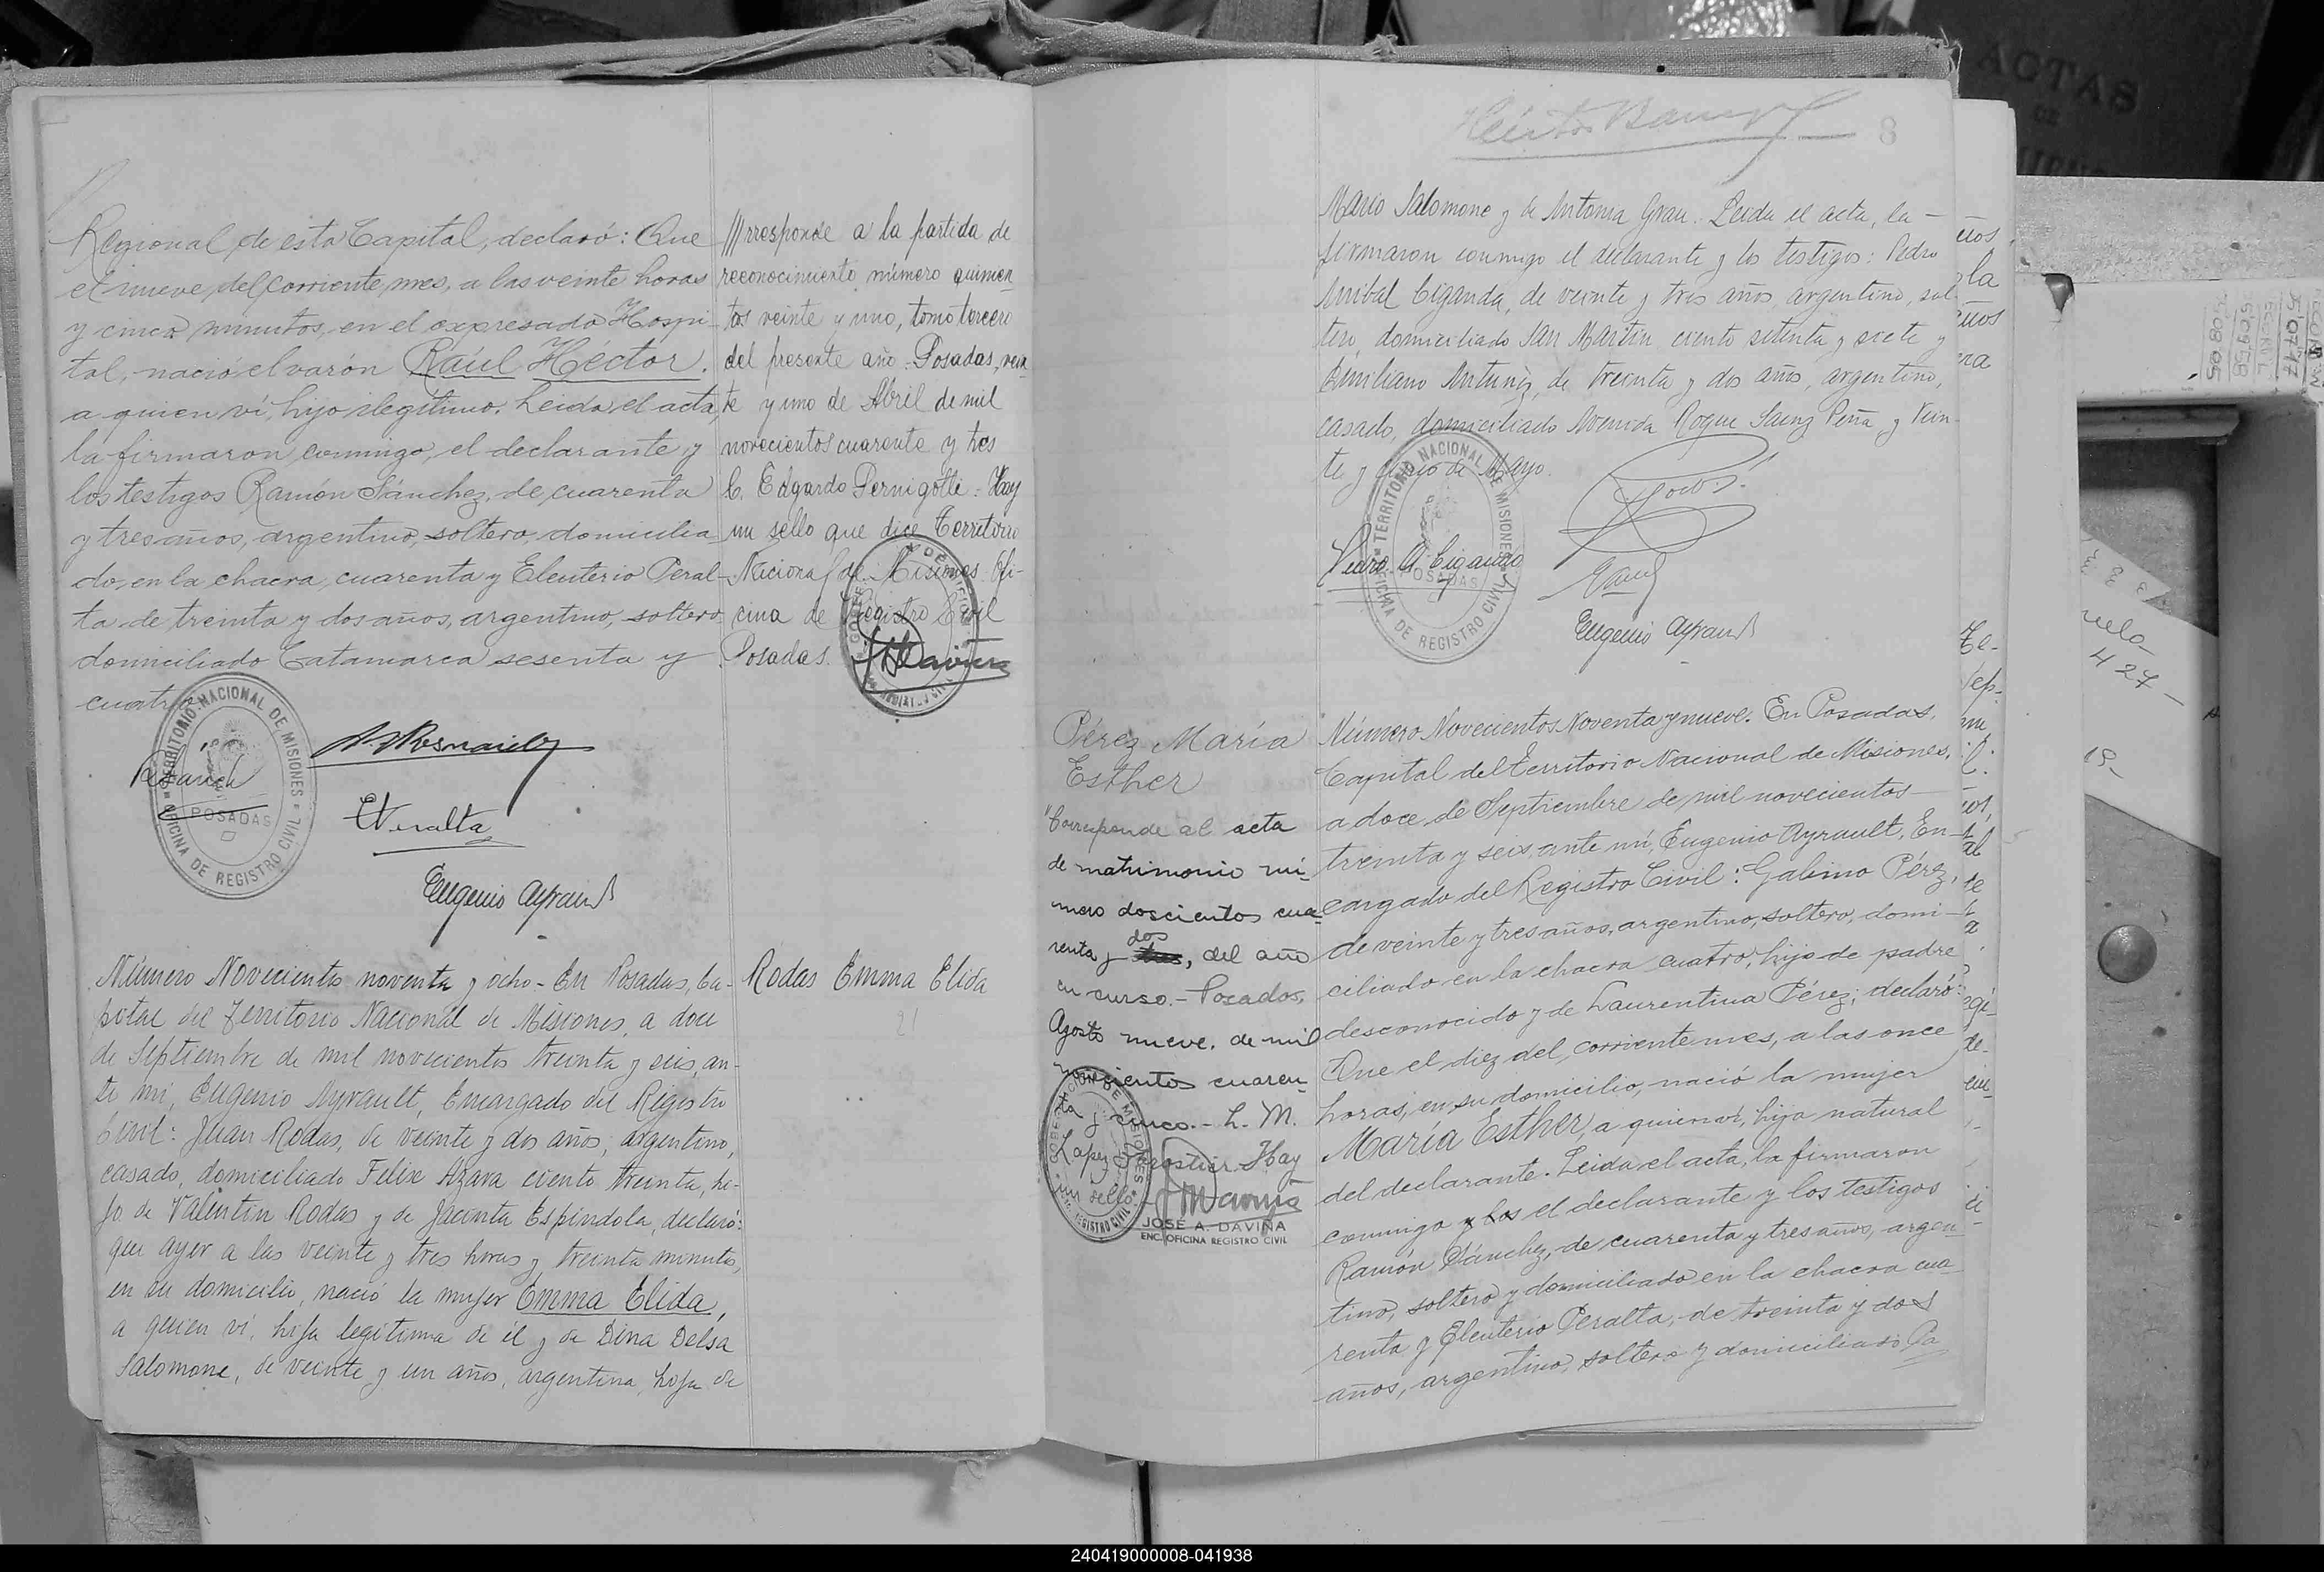 Regional de esta Capital, declaró: Que
el nueve del corriente mes, a las veinte horas
y cinco minutos, en el expresado Hospi-
tal, nació el varón Raúl Héctor.
a quien ví, hijo ilegítimo. Leida el acta,
la firmaron conmigo, el declarante y
los testigos Ramón Sánchez, de cuarenta
y tres años, argentino, soltero, domicilia-
do, en la chacra cuarenta y Eleuterio Peral-
ta de treinta y dos años, argentino, soltero
domiciliado Catamarca sesenta y
cuatro
rresponde a la partida de
reconocimiento número quinien-
tos veinte y uno, tomo tercero
del presente año. Posadas, vein
te y uno de Abril de mil
novecientos cuarenta y tres
C. Edgardo Pernigotti: Hay
un sello que dice Territorio
Nacional de Misiones Ofi-
cina de Registro Civil
Posadas.
TERRITORIO NACIONAL DE MISIONES
OFICINA DE REGISTRO CIVIL
POSADAS
EPeralta
Eugenio Ayrault
Número Novecientos noventa y ocho - En Posadas, Ca-
pital del Territorio Nacional de Misiones, a doce
de Septiembre de mil novecientos treinta y seis, an-
te mi, Eugenio Ayrault, Encargado del Registro
Civil: Juan Rodas, de veinte y dos años, argentino,
casado, domiciliado Felix Azara ciento treinta, hi-
jo de Valentin Rodas y de Jacinta Espindola, declaró:
que ayer a las veinte y tres horas y treinta minutos,
en su domicilio, nació la mujer Emma Elida,
a quien ví, hija legítima de él y de Dina Delsa
Salomone, de veinte y un años, argentina, hija de
Rodas Emma Elida
21
8
Mario Salomone y de Antonia Grau. Leida el acta, la -
firmaron conmigo el declarante y los testigos: Pedro
Anibal Ciganda, de veinte y tres años, argentino, sol
tero, domiciliado San Martin ciento setenta y siete y
Emiliano Antunez, de treinta y dos años, argentino,
casado, domiciliado Avenida Roque Saenz Peña y Vein-
te y cinco de Mayo.
TERRITORIO NACIONAL DE MISIONES
OFICINA DE REGISTRO CIVIL
POSADAS
Pedro A. Ciganda
Eugenio Ayrault
Pérez María
Esther
"Corresponde al acta
de matrimonio nú-
mero doscientos cua-
renta y tres, del año
dos
en curso. - Posadas,
Agosto nueve, de mil
novecientos cuaren-
ta y cinco. - L. M.
Lopez Hay
un sello"
JOSÉ A. DAVIÑA
ENC. OFICINA REGISTRO CIVIL
Número Novecientos Noventa y nueve. En Posadas,
Capital del Territorio Nacional de Misiones,
a doce de Septiembre de mil novecientos
treinta y seis, ante mí, Eugenio Ayrault, En-
cargado del Registro Civil: Gabino Pérez,
de veinte y tres años, argentino, soltero, domi-
ciliado en la chacra cuatro, hijo de padre
desconocido y de Laurentina Pérez; declaró:
Que el diez del corriente mes, a las once
horas, en su domicilio, nació la mujer
María Esther, a quien ví, hija natural
del declarante. Leida el acta, la firmaron
conmigo y los el declarante y los testigos
Ramón Sánchez, de cuarenta y tres años, argen
tino, soltero y domiciliado en la chacra cua
renta y Eleuterio Peralta, de treinta y dos
años, argentino, soltero y domiciliado Ca
ACTAS
DE
427
240419000008-041938